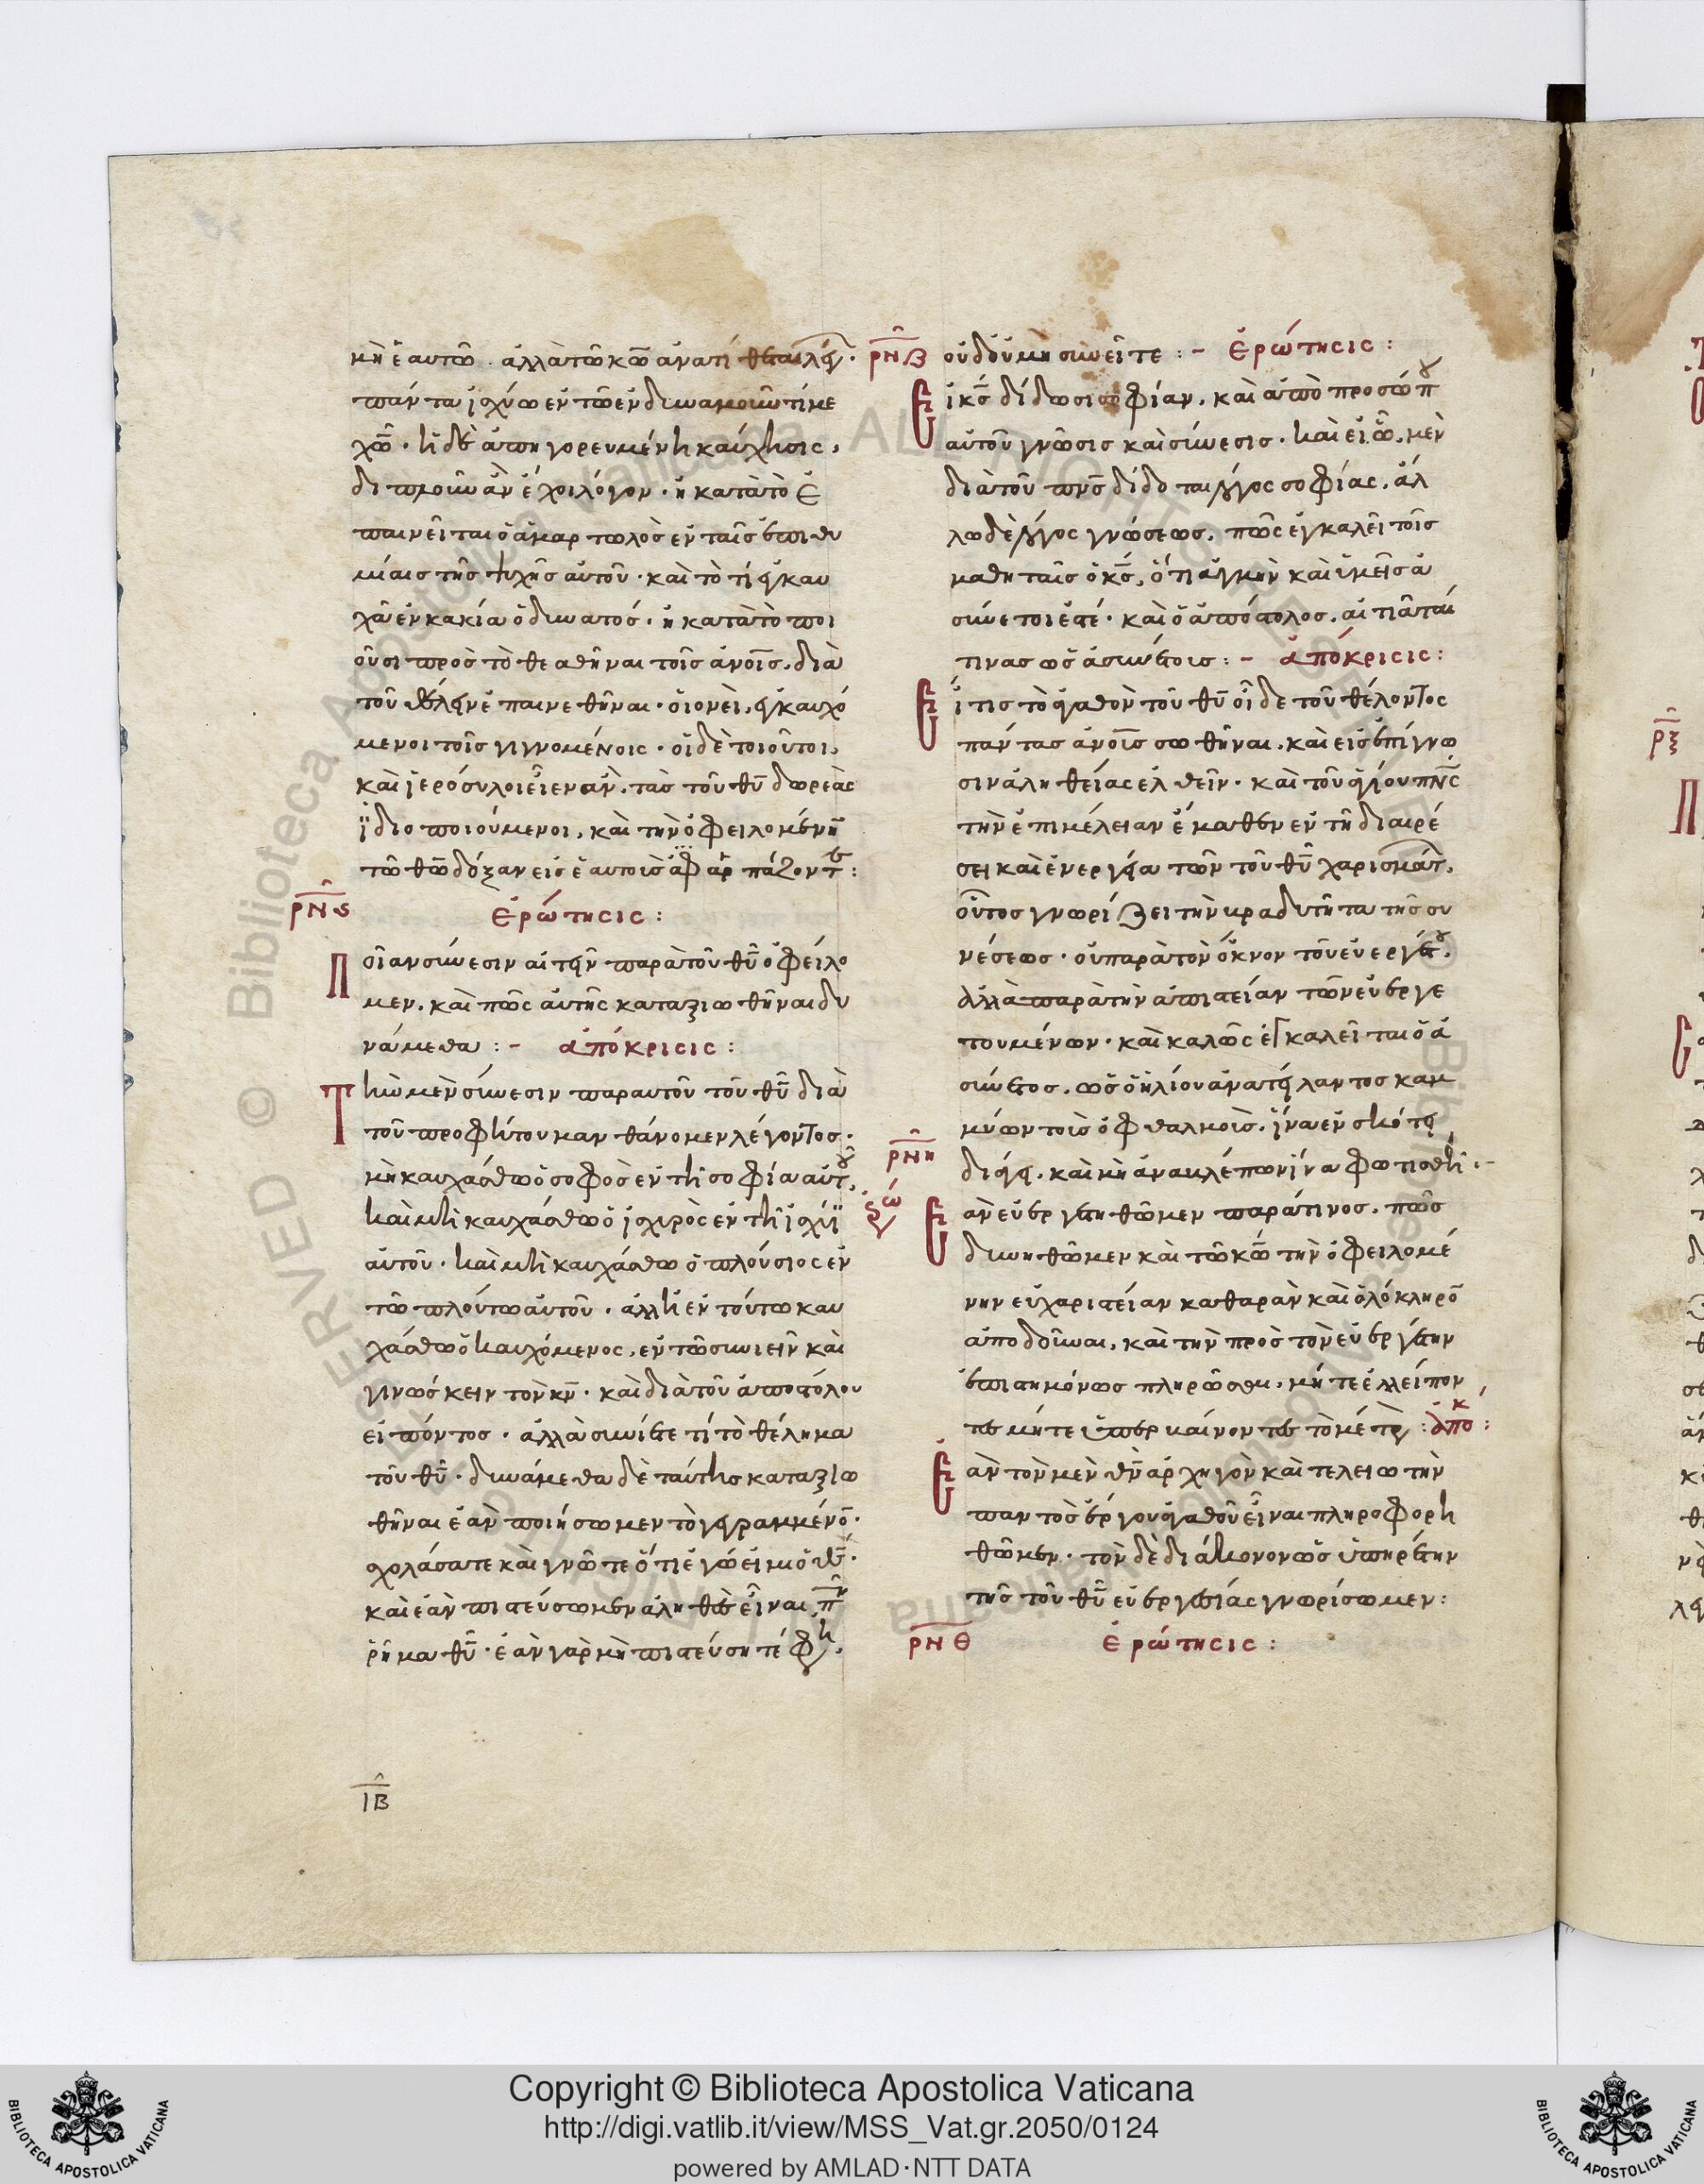 μὴ ἑαυτῶ. ἀλλὰ τῶ κῶ ἀνατίθεται λέγων·
πάντα ἰσχύω ἐν τῶ ἐνδυναμοῦντί με
χῶ· ἡ δὲ ἀπηγορευμένη καύχησις,
διπλοῦν ἂν ἔχοι λόγον· ἢ κατὰ τὸ ἐ
παινεῖται ὁ ἁμαρτωλὸς ἐν ταῖς ἐπιθυ
μίαις τῆς ψυχῆς αὐτοῦ· καὶ τὸ τί ἐγκαυ
χᾶ ἐν κακία ὁ δυνατός· ἢ κατὰ τὸ ποι
οῦσι πρὸς τὸ θεαθῆναι τοῖς ἀνοις, διὰ
τοῦ θέλειν ἐπαινεθῆναι· οἱονεὶ, ἐγκαυχό
μενοι τοῖς γιγνομένοις· οἱ δὲ τοιοῦτοι,
καὶ ἱερόσυλοι εἶεν ἂν, τὰς τοῦ θυ δωρεὰς
ἰδιοποιούμενοι, καὶ τὴν ὀφειλομένην
τῶ θῶ δόξαν εἰς ἑαυτοὺς ἀφαρπάζοντ:
ΡΝϚ ἐρώτησις:
Ποίαν σύνεσιν αἰτεῖν παρὰ τοῦ θυ ὀφείλο
μεν, καὶ πῶς αὐτῆς καταξιωθῆναι δυ
νάμεθα:- ἀπόκρισις:
Τὴν μὲν σύνεσιν παρ αυτοῦ τοῦ θυ διὰ
τοῦ προφήτου μανθάνομεν λέγοντος·
μὴ καυχάσθω ὁ σοφὸς ἐν τῆ σοφία αὐτ,
καὶ μὴ καυχάσθω ὁ ἰσχυρὸς ἐν τῆ ἰσχύϊ
αὐτοῦ· καὶ μὴ καυχάσθω ὁ πλούσιος ἐν
τῶ πλούτω αὐτοῦ· ἀλλ ἢ ἐν τούτω καυ
χάσθω ὁ καυχόμενος, ἐν τῶ συνιεῖν καὶ
γινώσκειν τὸν κν· καὶ διὰ τοῦ ἀποστόλου
εἰπόντος· ἀλλὰ συνίετε τί τὸ θέλημα
τοῦ θυ· δυνάμεθα δὲ ταύτης καταξιω
θῆναι ἐὰν ποιήσωμεν τὸ γεγραμμένο·
σχολάσατε καὶ γνῶτε ὅτι ἐγώ εἰμι ὁ θς·
καὶ ἐὰν πιστεύσωμεν ἀληθὲς εἶναι π
ῥῆμα θυ· ἐὰν γὰρ μὴ πιστεύσητέ φη,
ΙΒ
ΡΝΖ οὐδ οὐ μὴ συνεῖτε:- Ἐρώτησις:
Εἰ κς δίδωσι σοφίαν, καὶ ἀπὸ προσώπ
αὐτοῦ γνῶσις καὶ σύνεσις· καὶ εἰ ὧ, μὲν
διὰ τοῦ πνς δίδοται λόγος σοφίας, ἄλ
λω δὲ λόγος γνώσεως, πῶς ἐγκαλεῖ τοῖς
μαθηταῖς ὁ κς, ὅτι ἀκμὴν καὶ ὑμεῖς ἀ
σύνετοι ἐστέ· καὶ ὁ ἀπόστολος, αἰτιᾶται
τινας ὡς ἀσυνέτους:- ἀπόκρισις:
Εἴ τις τὸ ἀγαθὸν τοῦ θυ οἶδε τοῦ θέλοντος
πάντας ἀνους σωθῆναι, καὶ εἰς ἐπίγνω
σιν ἀληθείας ἐλθεῖν· καὶ τοῦ ἁγίου πνς
τὴν ἐπιμέλειαν ἔμαθεν ἐν τῆ διαιρέ
σει καὶ ἐνεργεία τῶν τοῦ θυ χαρισμάτ,
οὗτος γνωρίζει τὴν βραδυτῆτα τῆς συ
νέσεως· οὐ παρὰ τὸν ὄκνον τοῦ εὐεργέτ,
ἀλλὰ παρὰ τὴν ἀπιστείαν τῶν εὐεργε
τουμένων· καὶ καλῶς ἐγκαλεῖται ὁ ἀ
σύνετος, ὡς ὁ ἡλίου ἀνατείλαντος καμ
μύων τοὺς ὀφθαλμοὺς, ἵνα ἐν σκότει
διάγη, καὶ μὴ ἀναβλέπων ἵνα φωτισθῆ:-
ΡΝΗ ἐρώ
Ἐὰν εὐεργετηθῶμεν παρά τινος, πῶς
δυνηθῶμεν καὶ τῶ κῶ τὴν ὀφειλομέ
νην εὐχαριστείαν καθαρὰν καὶ ὁλόκληρο
ἀποδοῦναι, καὶ τὴν πρὸς τὸν εὐεργέτην
ἐπιστημόνως πληρῶσαι, μήτε ἐλλείπον
τες μήτε ὑπερβαίνοντες τὸ μέτρον: ἀπόκ:
Ἐὰν τὸν μὲν θν ἀρχηγὸν καὶ τελειωτὴν
παντὸς ἔργου ἀγαθοῦ εἶναι πληροφορη
θῶμεν· τὸν δὲ διάκονον ὡς ὑπηρέτην
τῆς τοῦ θυ εὐεργεσίας γνωρίσωμεν:
ΡΝΘ ἐρώτησις:
ΡΞ
Copyright © Biblioteca Apostolica Vaticana
http://digi.vatlib.it/view/MSS_Vat.gr.2050/0124
powered by AMLAD·NTT DATA
BIBLIOTECA APOSTOLICA VATICANA
BIBLIOTECA APOSTOLICA VATICANA